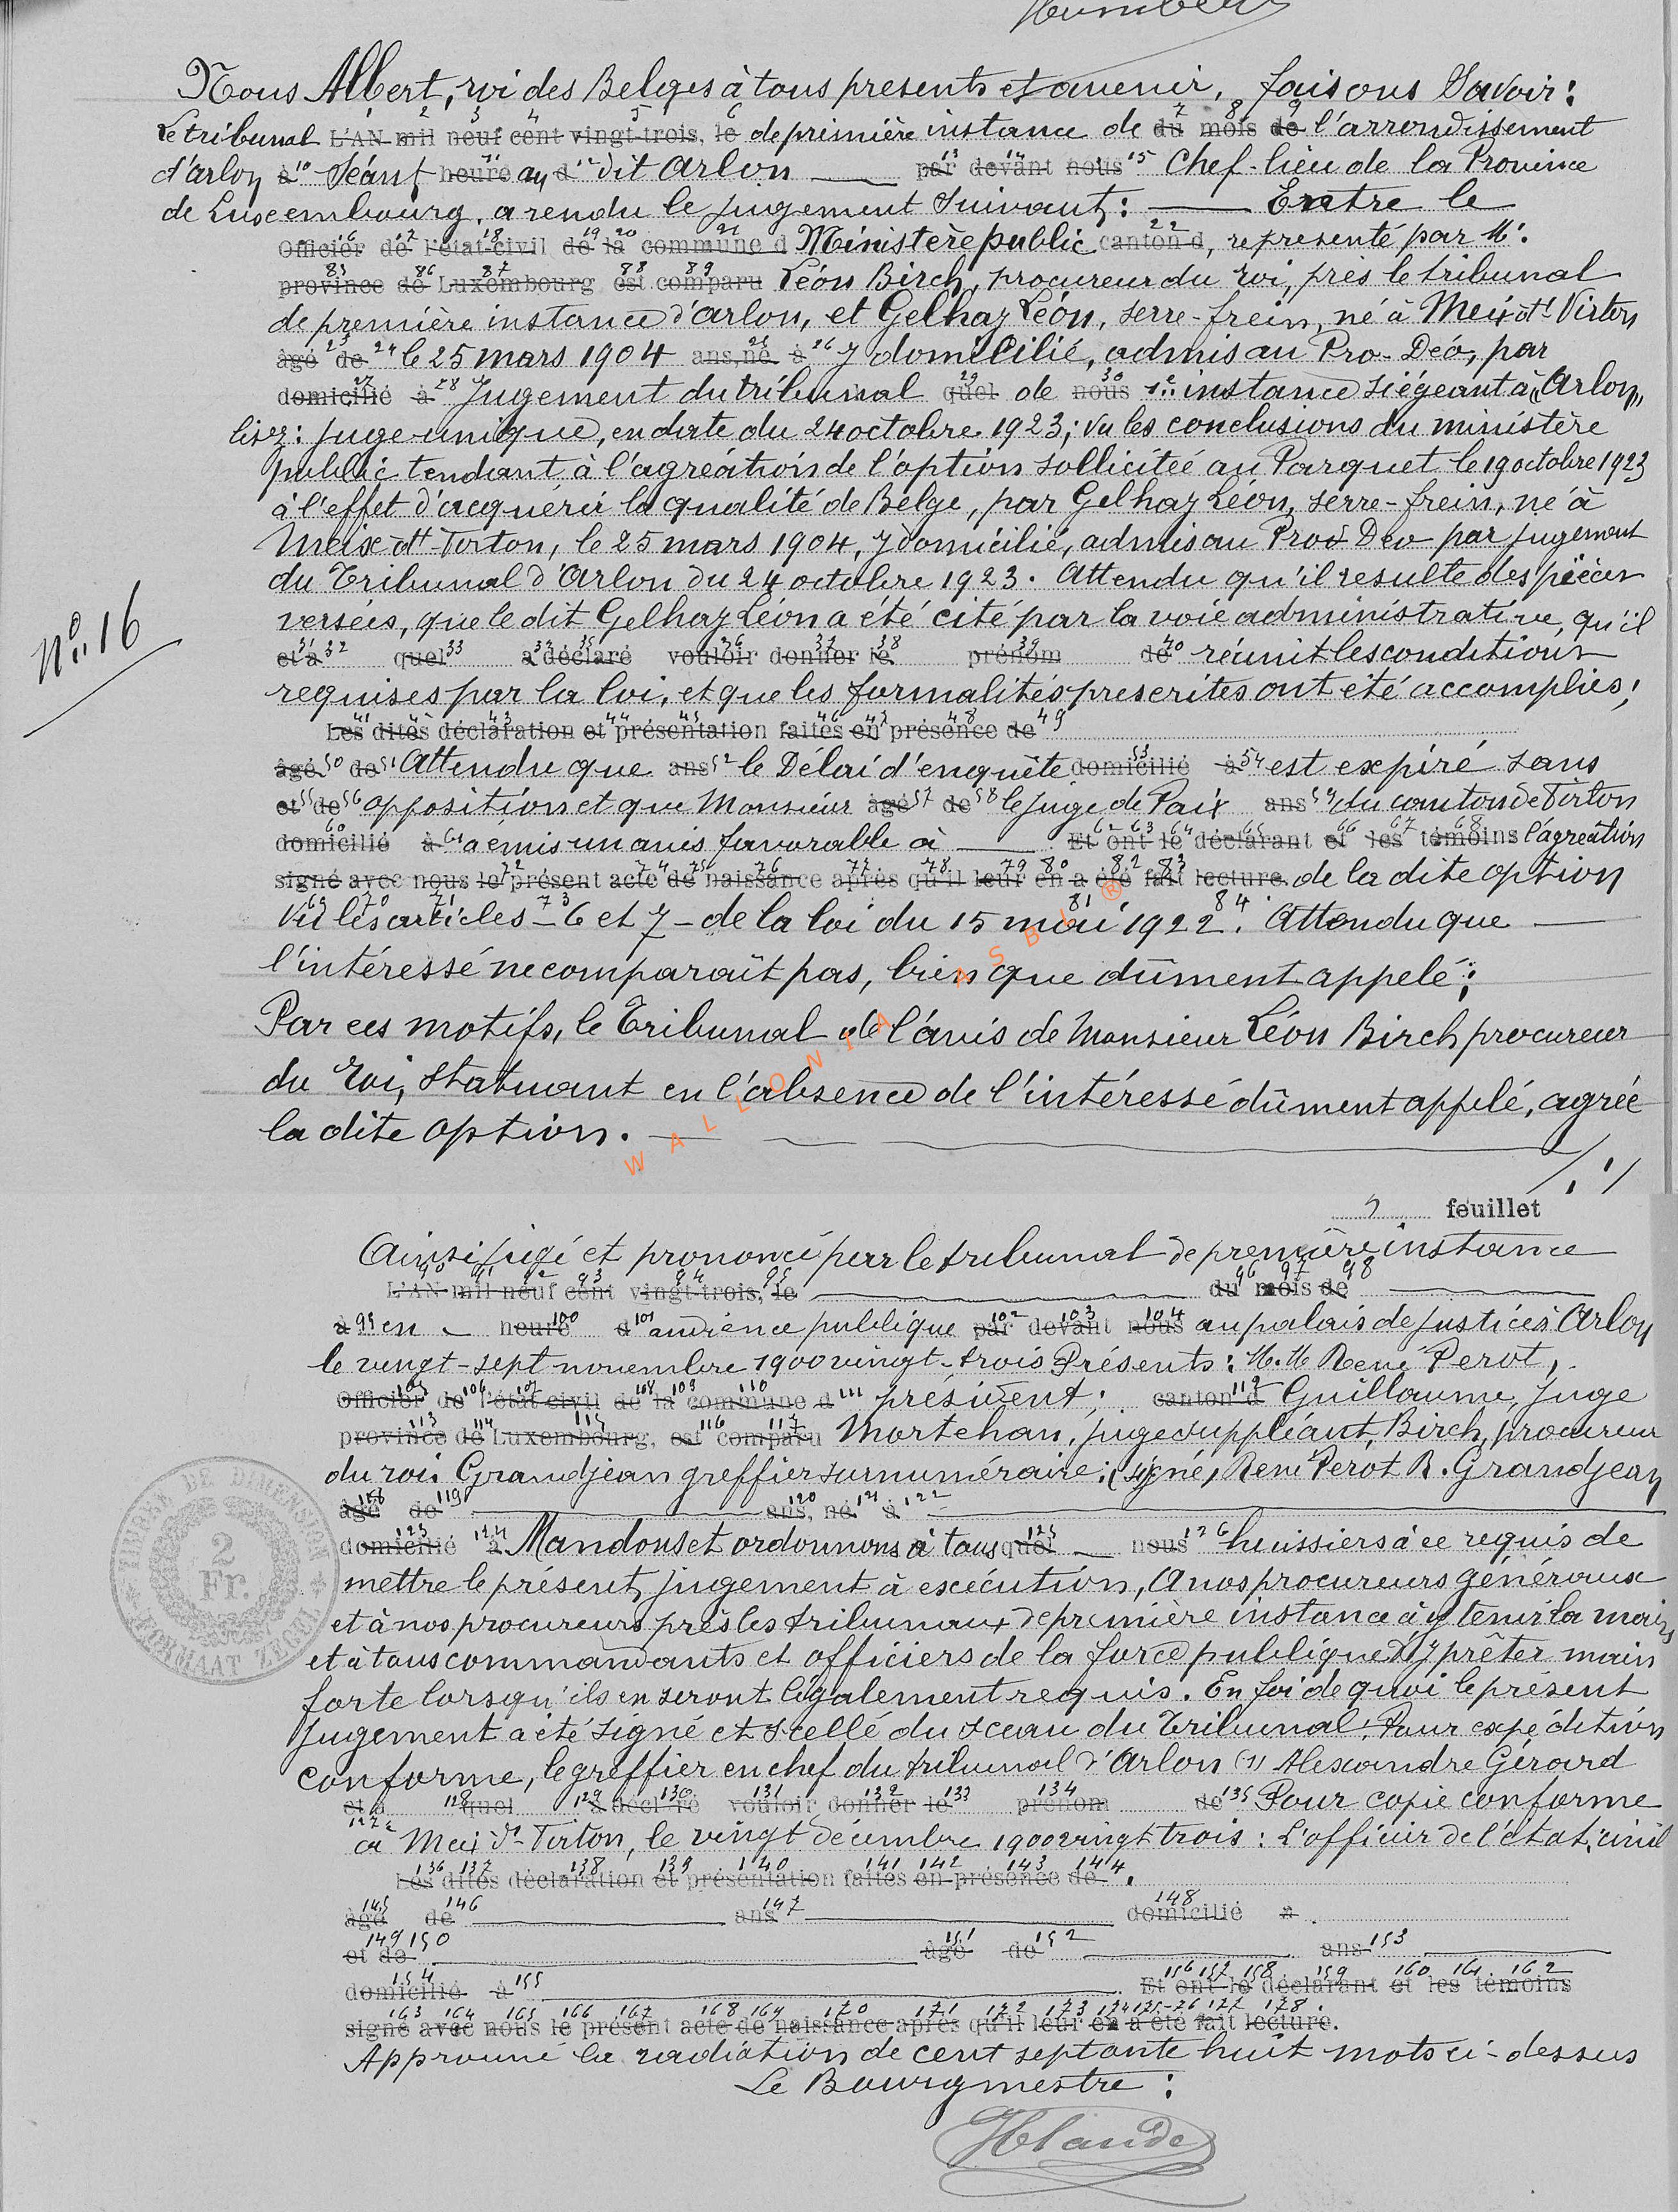 Nous Albert, roi des Belges à tous presents et avenir, faisons Savoir:
Le tribunal L'AN mil neuf cent vingt-trois, le de première instance de du mois de l'arrondissement
d'arlon à Séant heure au d dit Arlon par devant nous Chef-lieu de la Province
de Luxembourg, a rendu le jugement suivant: Entre le
Officier de l'état-civil de la commune d Ministère public canton d, representé par Mr.
province de Luxembourg est comparu Léon Birch, procureur du roi, près le tribunal
de première instance d'arlon, et Gelhay Léon, serre-frein, né à Meix dt Virton
âgé de le 25 mars 1904 ans, né à y domicilié, admis au Pro-Deo, par
domicilié à Jugement du tribunal quel de nous 1re instance siégeant à "Arlon"
lisez: juge unique, en date du 24 octobre 1923; vu les conclusions du ministère
public tendant à l'agréation de l'option sollicitée au Parquet le 19 octobre 1923
à l'effet d'acquérir la qualité de Belge, par Gelhay Léon, serre-frein, né à
Meix-dt-Virton, le 25 mars 1904, y domicilié, admis au Pro Deo par jugement
du Tribunal d'Arlon du 24 octobre 1923. Attendu qu'il resulte des pièces
versées, que le dit Gelhay Léon a été cité par la voie administrative, qu'il
et à quel a déclaré vouloir donner le prénom de réunit les conditions
requises par la loi, et que les formalités prescrites ont été accomplies;
N° 16
Les dites déclaration et présentation faites en présence de
âgé de Attendu que ans le Délai d'enquête domicilié à est expiré sans
et de opposition et que Monsieur âgé de le juge de Paix ans du canton de Virton
domicilié à a émis un avis favorable à Et ont le déclarant et les témoins l'agréation
signé avec nous le présent acte de naissance après qu'il leur en a été fait lecture. de la dite option
Vu les articles - 6 et 7 - de la loi du 15 mai 1922. Attendu que
l'intéressé ne comparaît pas, bien que dûment appelé;
Par ces motifs, le Tribunal de l'avis de Monsieur Léon Birch procureur
du Roi, Statuant en l'absence de l'intéressé dûment appelé, agrée
la dite option.
WALLONIA ASBL ®
feuillet
Ainsi jugé et prononcé par le tribunal de première instance
L'AN mil neuf cent vingt-trois, le du mois de
à en heure d audience publique par devant nous au palais de justice à Arlon
le vingt-sept novembre 1900 vingt-trois Présents: M.M René Perot,
Officier de l'état-civil de la commune d président; canton d Guillaume, juge
province de Luxembourg, est comparu Mortehan, juge suppléant, Birch, procureur
du roi. Grandjean greffier surnuméraire: (signé) René Perot R. Grandjean
âgé de ans, né à
domicilié à Mandons et ordonnons à tous quel nous huissiers à ce requis de
mettre le présent jugement à exécution, A nos procureurs généraux
et à nos procureurs près les tribunaux de première instance à y tenir la main
et à tous commandants et officiers de la force publique d'y prêter main
forte lorsqu'ils en seront légalement requis. En foi de quoi le présent
Jugement a été signé et scellé du sceau du Tribunal. Pour expédition
conforme, le greffier en chef du tribunal d'Arlon (s) Alexandre Gérard
et à quel a déclaré vouloir donner le prénom de Pour copie conforme
à Meix dt-Virton, le vingt décembre 1900 vingt trois: L'officier de l'état civil
Les dites déclaration et présentation faites en présence de
âgé de ans domicilié à
et de âgé de ans
domicilié à Et ont le déclarant et les témoins
signé avec nous le présent acte de naissance après qu'il leur en a été fait lecture.
Approuvé la radiation de cent septante huit mots ci-dessus
Le Bourgmestre:
TIMBRE DE DIMENSION
2
Fr.
FORMAAT ZEGEL